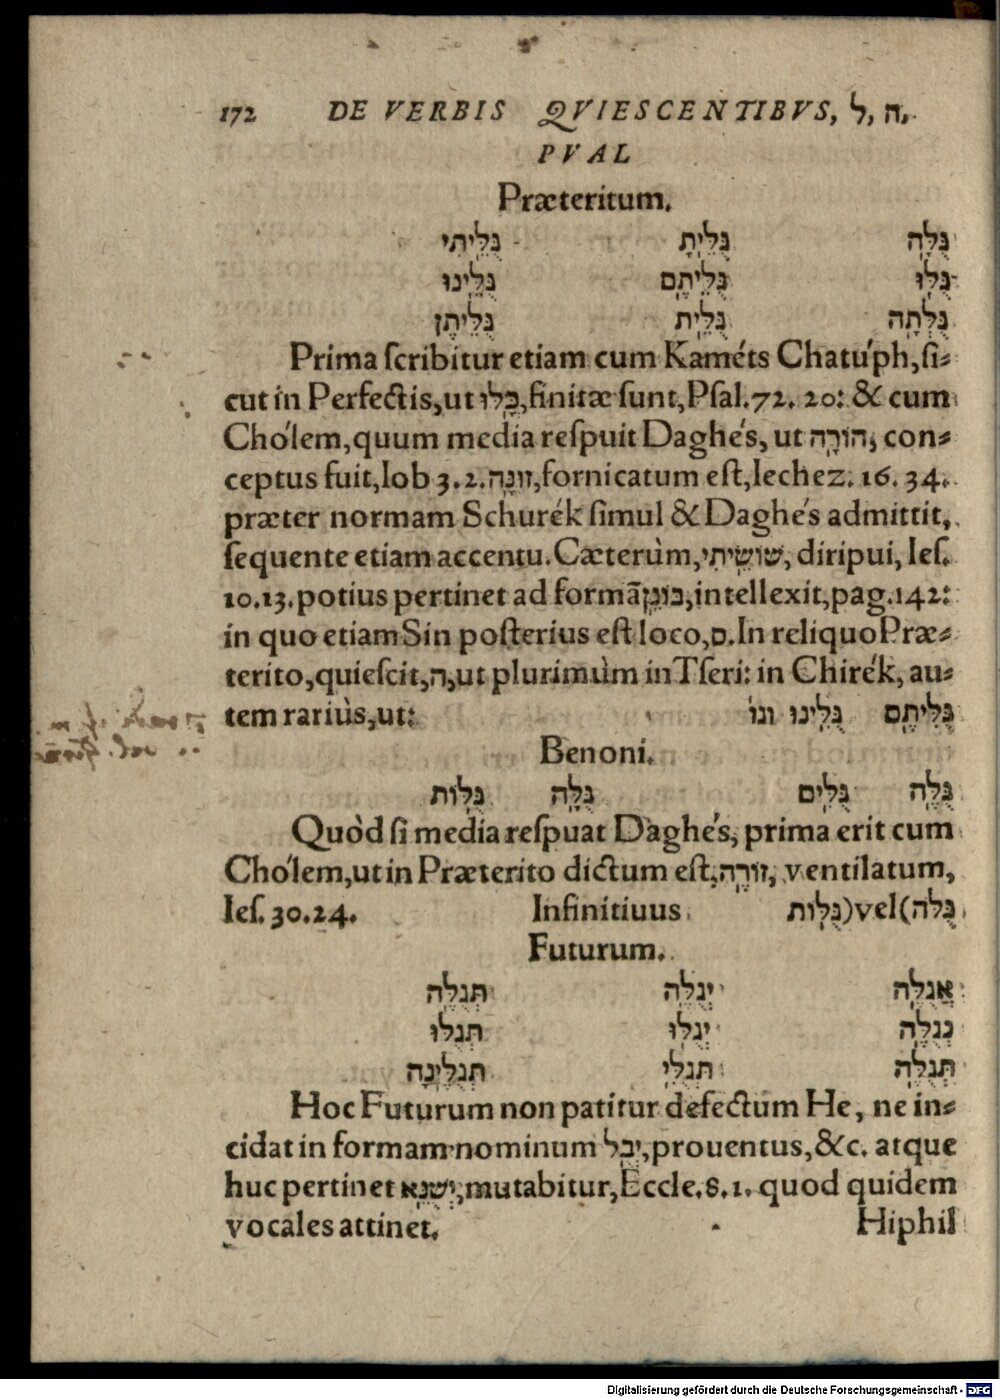 172 DE VERBIS QVIESCENTIBVS, ל, ה,
PVAL
Præteritum.
גֻּלָּה גֻּלֵּיתָ גֻּלֵּיתִי
גֻּלּוּ גֻּלֵּיתֶם גֻּלֵּינוּ
גֻּלְּתָה גֻּלֵּית גֻּלֵּיתֶן
Prima ſcribitur etiam cum Kaméts Chatúph, ſi⸗
cut in Perfectis, ut כָּלּוּ, finitæ ſunt, Pſal. 72. 20: & cum
Chólem, quum media reſpuit Daghés, ut הוֹרָה, con⸗
ceptus fuit, Iob 3. 2. זוּנָּה, fornicatum eſt, Iechez. 16. 34.
præter normam Schurék ſimul & Daghés admittit,
ſequente etiam accentu. Cæterùm, שׁוֹשֵׂיתִי, diripui, Ieſ.
10. 13. potius pertinet ad formã בּוֹנֵן, intellexit, pag. 142:
in quo etiam Sin poſterius eſt loco, ס. In reliquo Præ⸗
terito, quieſcit, ה, ut plurimùm in Tſeri: in Chirék, au⸗
tem rariùs, ut: גֻּלִּיתֶם גֻּלִּינוּ וגו
Benoni.
גֻּלֶּה גֻּלִּים גֻּלָּה גֻּלּוֹת
Quòd ſi media reſpuat Daghés, prima erit cum
Chólem, ut in Præterito dictum eſt, זוֹרֶה, ventilatum,
Ieſ. 30. 24. Infinitiuus גֻּלֹּה) vel (גֻּלּוֹת
Futurum.
אֲגֻלֶּה יְגֻלֶּה תְּגֻלֶּה
נְגֻלֶּה יְגֻלּוּ תְּגֻלּוּ
תְּגֻלֶּה תְּגֻלִּי תְּגֻלֶּינָה
Hoc Futurum non patitur defectum He, ne in⸗
cidat in formam nominum יְבֻל, prouentus, &c. atque
huc pertinet יְשֻׁנֶּא, mutabitur, Eccle. 8. 1. quod quidem
vocales attinet. Hiphil
Digitalisierung gefördert durch die Deutsche Forschungsgemeinschaft - DFG